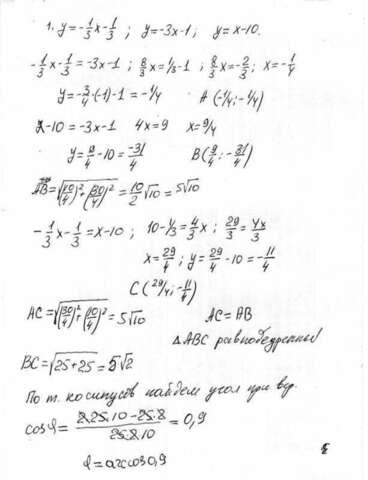 1. y = -1/3x - 1/3 ; y = -3x - 1 ; y = x - 10.
-1/3x - 1/3 = -3x - 1 ; 8/3x = 1/3 - 1 ; 8/3x = -2/3 ; x = -1/4
y = -3/4·(-1) - 1 = -1/4 A (-1/4 ; -1/4)
x - 10 = -3x - 1 4x = 9 x = 9/4
y = 9/4 - 10 = -31/4 B (9/4 ; -31/4)
AB = √((10/4)² + (30/4)²) = 10/2 √10 = 5√10
-1/3x - 1/3 = x - 10 ; 10 - 1/3 = 4/3x ; 29/3 = 4x/3
x = 29/4 ; y = 29/4 - 10 = -11/4
C (29/4 ; -11/4)
AC = √((30/4)² + (10/4)²) = 5√10 AC = AB
△ABC равнобедренный
BC = √(25 + 25) = 5√2
По т. косинусов найдем угол при вер.
cos α = (2·25·10 - 25·2)/(25·2·10) = 0,9
α = arccos 0,9